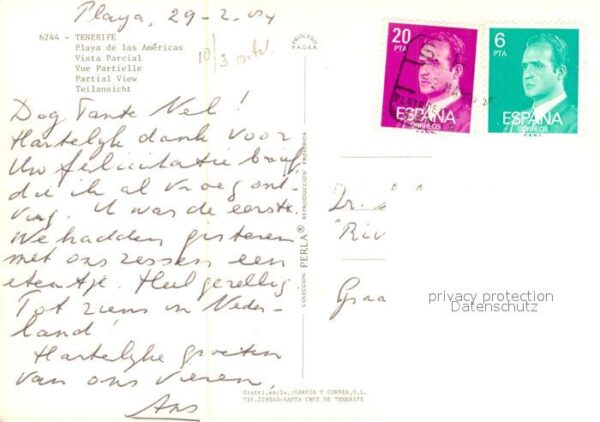 Playa, 29-2-84
6244 - TENERIFE
Playa de las Américas
Vista Parcial
Vue Partielle
Partial View
Teilansicht
10/3
PROCERO
Dag Tante Nel!
Hartelijk dank voor
Uw felicitatie brief
die ik al vroeg ont-
ving. U was de eerste.
We hadden gisteren
met ons zessen een
etentje. Heel gezellig
Tot ziens in Neder-
land!
Hartelijke groeten
van ons vieren,
Ans
COLECCION PERLA® REPRODUCCION PROHIBIDA
Distri.exclu.:GARCIA Y CORREA,S.L.
TIF.229040-SANTA CRUZ DE TENERIFE
20
PTA
ESPAÑA
CORREOS
6
PTA
ESPAÑA
CORREOS
"Riv
Graa
privacy protection
Datenschutz